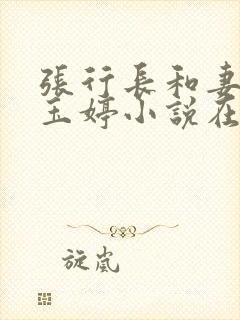 張行長和妻
玉婷小說在
旋嵐